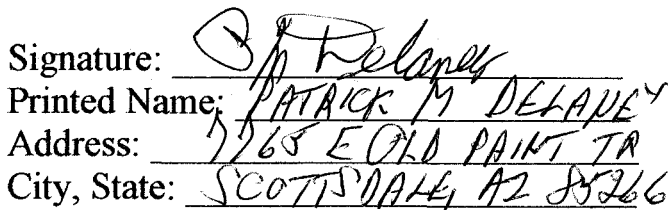 Signature: P M Delaney
Printed Name: PATRICK M DELANEY
Address: 7765 E OLD PAINT TR
City, State: SCOTTSDALE, AZ 85266